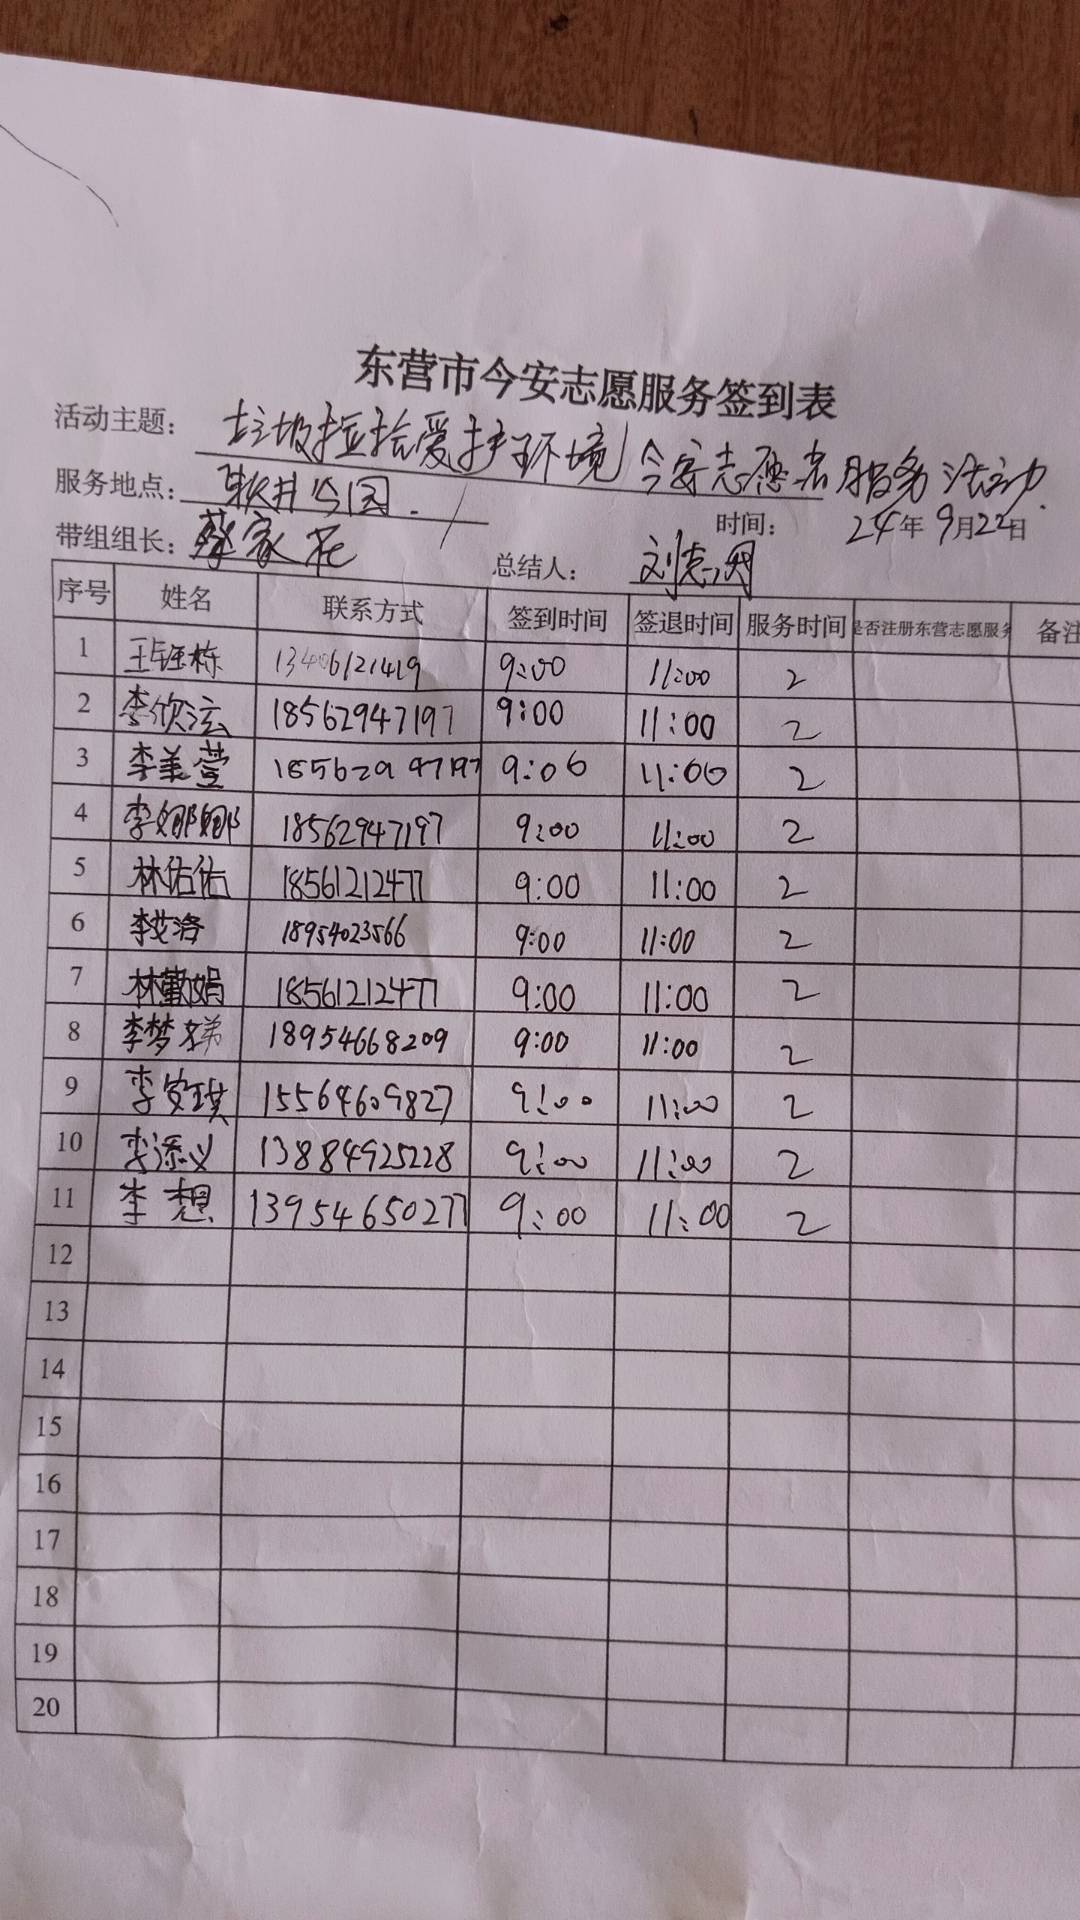 东营市今安志愿服务签到表
活动主题： 垃圾捡拾爱护环境 今安志愿者服务活动
服务地点： 软件公园.
时间： 24年9月22日
带组组长： 蔡家花 总结人： 刘志
序号 姓名 联系方式 签到时间 签退时间 服务时间 是否注册东营志愿服务 备注
1 王钰栋 13406121419 9:00 11:00 2
2 李欣泫 18562947197 9:00 11:00 2
3 李美萱 18562947197 9:00 11:00 2
4 李娜娜 18562947197 9:00 11:00 2
5 林佑佑 18561212477 9:00 11:00 2
6 李艾洛 18954023566 9:00 11:00 2
7 林勤娟 18561212477 9:00 11:00 2
8 李梦娣 18954668209 9:00 11:00 2
9 李安琪 15564609827 9:00 11:00 2
10 李添义 13884925228 9:00 11:00 2
11 李想 13954650277 9:00 11:00 2
12
13
14
15
16
17
18
19
20